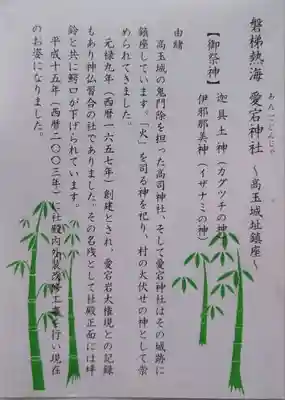 磐梯熱海 愛宕神社 ~高玉城址鎮座~
【御祭神】
迦具土神(カグツチの神)
伊邪那美神(イザナミの神)
由緒
高玉城の鬼門除を担った高司神社、そして愛宕神社はその城跡に
鎮座しています。「火」を司る神を祀り、村の火伏せの神として崇
められてきました。
元禄九年(西暦一六五七年)創建とされ、愛宕岩大権現との記録
もあり神仏習合の社でありました。その名残として社殿正面には坪
鈴と共に鰐口が下げられています。
平成十五年(西暦二〇〇三年)に社殿内外装改修工事を行い現在
のお姿になりました。